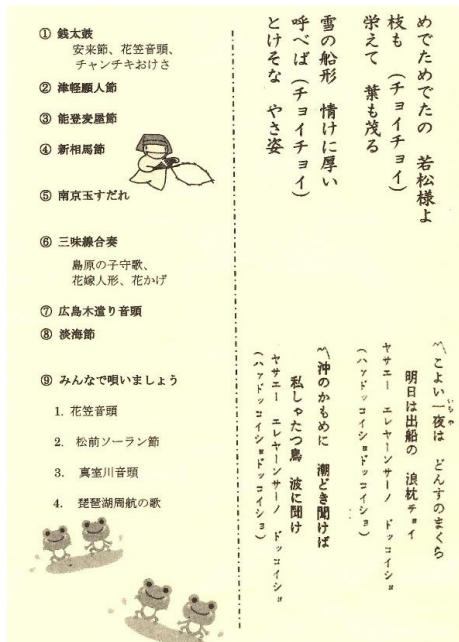 ① 銭太鼓
安来節、花笠音頭、
チャンチキおけさ
② 津軽願人節
③ 能登麦屋節
④ 新相馬節
⑤ 南京玉すだれ
⑥ 三味線合奏
島原の子守歌、
花嫁人形、花かげ
⑦ 広島木遣り音頭
⑧ 淡海節
⑨ みんなで唄いましょう
1. 花笠音頭
2. 松前ソーラン節
3. 真室川音頭
4. 琵琶湖周航の歌
めでためでたの 若松様よ
枝も (チョイチョイ)
栄えて 葉も茂る
雪の船形 情けに厚い
呼べば (チョイチョイ)
とけそな やさ姿
〽こよい一夜は どんすのまくら
いちや
明日は出船の 浪枕チョイ
ヤサエー エレヤーンサーノ ドッコイショ
(ハァドッコイショドッコイショ)
〽沖のかもめに 潮どき聞けば
私しゃたつ鳥 波に聞け
ヤサエー エレヤーンサーノ ドッコイショ
(ハァドッコイショドッコイショ)